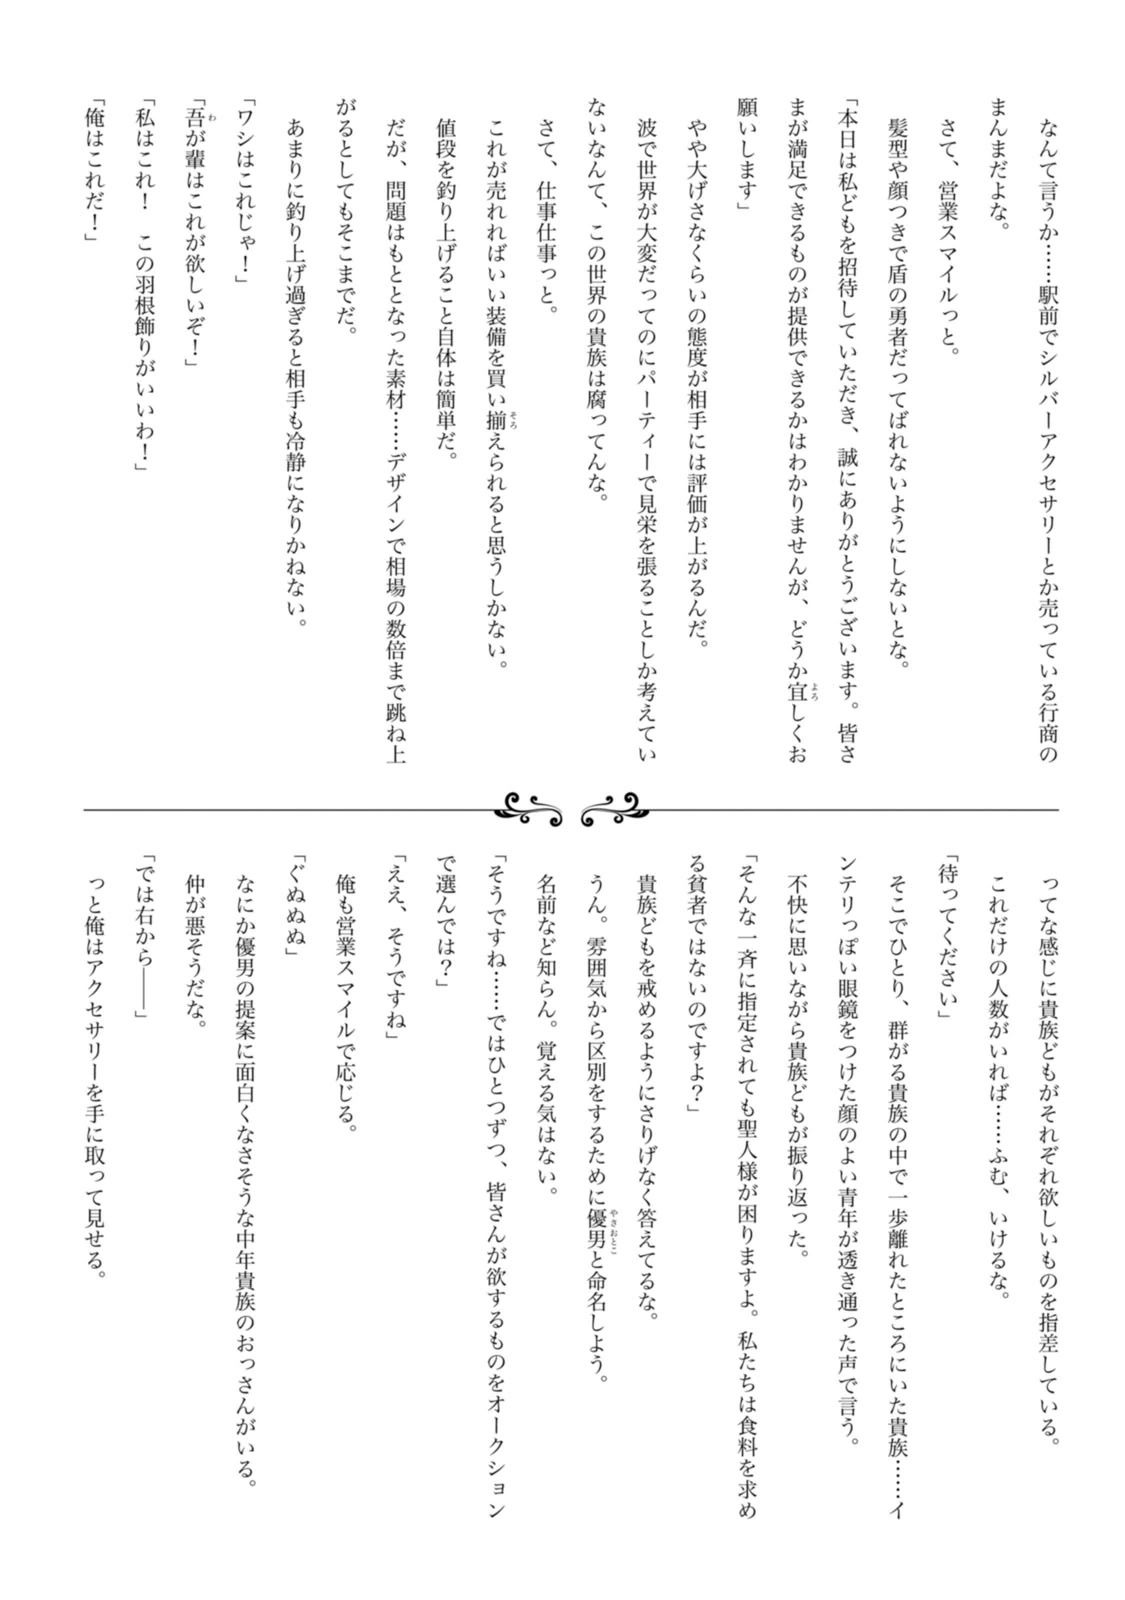 なんて言うか……駅前でシルバーアクセサリーとか売っている行商の
まんまだよな。
さて、営業スマイルっと。
髪型や顔つきで盾の勇者だってばれないようにしないとな。
「本日は私どもを招待していただき、誠にありがとうございます。皆さ
まが満足できるものが提供できるかはわかりませんが、どうか宜しくお
願いします」
やや大げさなくらいの態度が相手には評価が上がるんだ。
波で世界が大変だってのにパーティーで見栄を張ることしか考えてい
ないなんて、この世界の貴族は腐ってんな。
さて、仕事仕事っと。
これが売れればいい装備を買い揃えられると思うしかない。
値段を釣り上げること自体は簡単だ。
だが、問題はもととなった素材……デザインで相場の数倍まで跳ね上
がるとしてもそこまでだ。
あまりに釣り上げ過ぎると相手も冷静になりかねない。
「ワシはこれじゃ！」
「吾が輩はこれが欲しいぞ！」
「私はこれ！　この羽根飾りがいいわ！」
「俺はこれだ！」
ってな感じに貴族どもがそれぞれ欲しいものを指差している。
これだけの人数がいれば……ふむ、いけるな。
「待ってください」
そこでひとり、群がる貴族の中で一歩離れたところにいた貴族……イ
ンテリっぽい眼鏡をつけた顔のよい青年が透き通った声で言う。
不快に思いながら貴族どもが振り返った。
「そんな一斉に指定されても聖人様が困りますよ。私たちは食料を求め
る貧者ではないのですよ？」
貴族どもを戒めるようにさりげなく答えてるな。
うん。雰囲気から区別をするために優男と命名しよう。
名前など知らん。覚える気はない。
「そうですね……ではひとつずつ、皆さんが欲するものをオークション
で選んでは？」
「ええ、そうですね」
俺も営業スマイルで応じる。
「ぐぬぬぬ」
なにか優男の提案に面白くなさそうな中年貴族のおっさんがいる。
仲が悪そうだな。
「では右から――」
っと俺はアクセサリーを手に取って見せる。